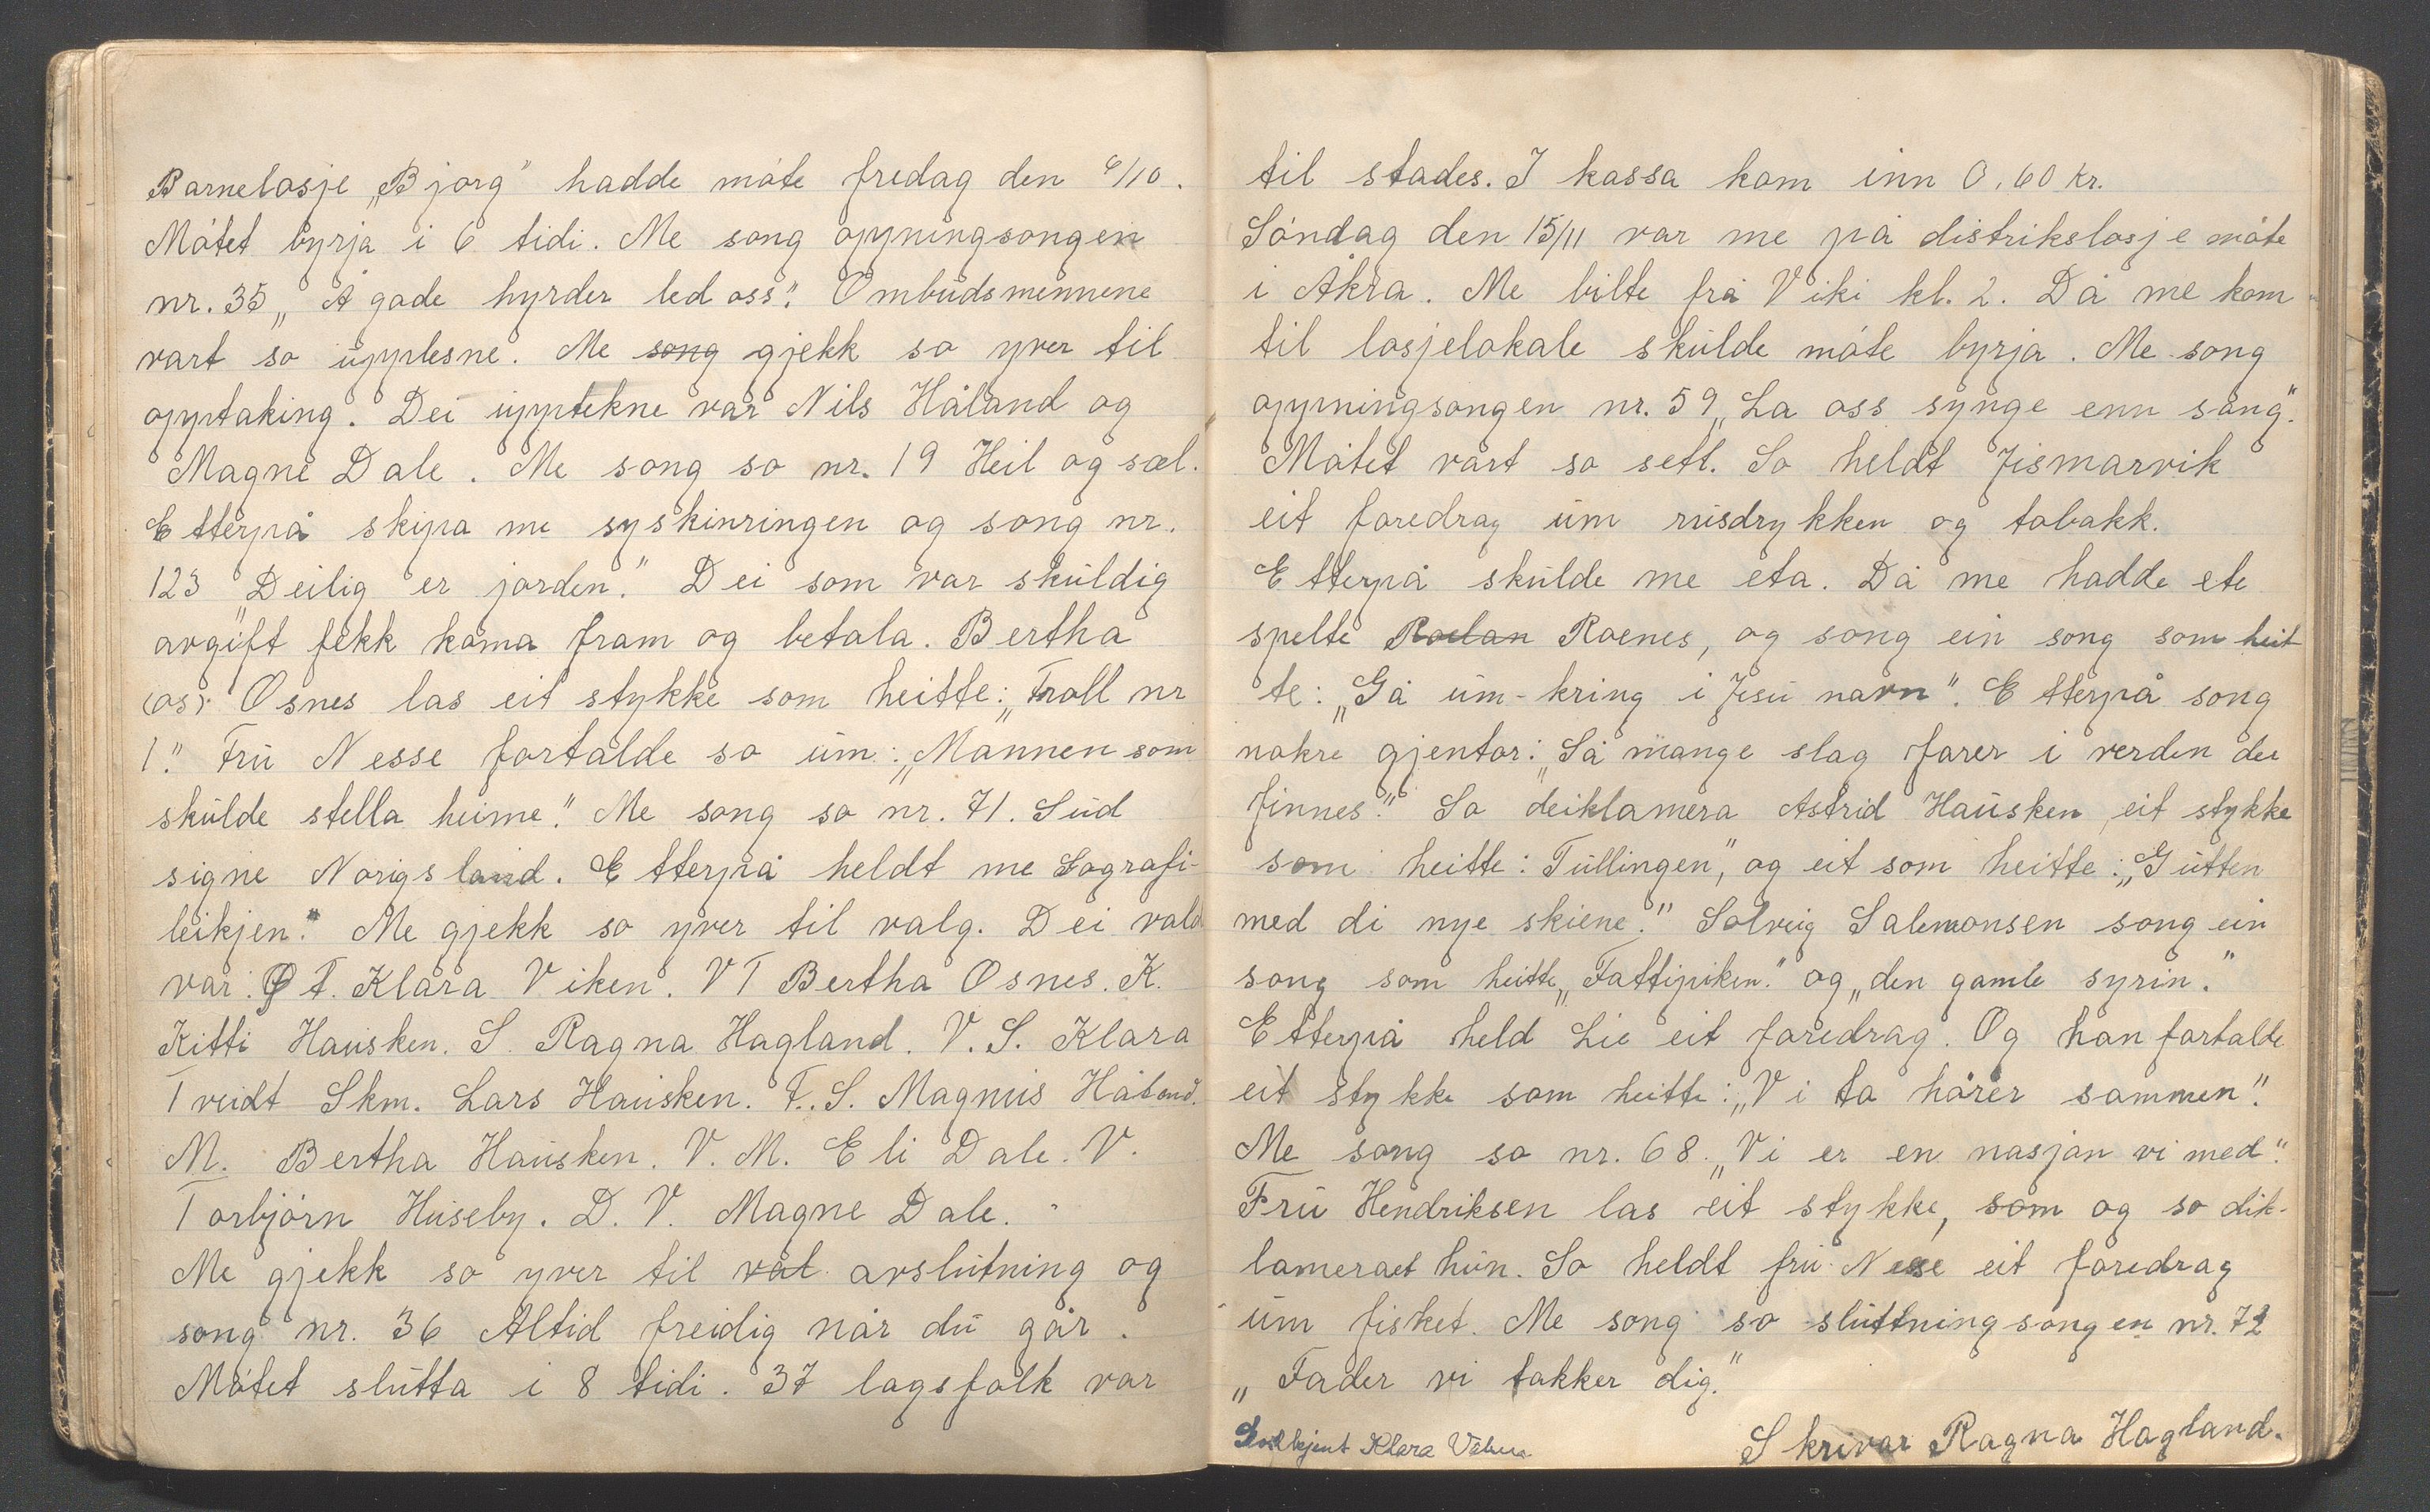 Barnelosje „Bjørg" hadde møte fredag den 6/10.
Møtet byrja i 6 tidi. Me song opningsongen
nr. 35 „Å gode hyrder led oss". Ombudsmennene
vart so upplesne. Me song gjekk so yver til
opptaking. Dei upptekne var Nils Håland og
Magne Dale. Me song so nr. 19 Heil og sæl.
Etterpå skipa me syskinringen og song nr.
123 "Deilig er jorden." Dei som var skuldig
avgift fekk koma fram og betala. Bertha
(os) Osnes las eit stykke som heitte: „Troll nr
1." Fru Nesse fortalde so um: „Mannen som
skulde stella heime." Me song so nr. 71. Gud
signe Norigs land. Etterpå heldt me Sografi-
leikjen." Me gjekk so yver til valg. Dei vald
var: Ø T. Klara Viken. V T Bertha Osnes. K.
Kitti Hausken. S. Ragna Hagland. V. S. Klara
Tveidt Skm. Lars Hausken. F. S. Magnus Håland.
M. Bertha Hausken. V. M. Eli Dale. V.
Torbjørn Huseby. D. V. Magne Dale.
Me gjekk so yver til val avslutning og
song nr. 36 Altid freidig når du går.
Møtet slutta i 8 tidi. 37 lagsfolk var
til stades. I kassa kom inn 0,60 kr.
Søndag den 15/11 var me på distrikslosje møte
i Åkra. Me bilte frå Viki kl. 2. Då me kom
til losjelokale skulde møte byrja. Me song
opningsongen nr. 59 „La oss synge enn sang".
Møtet vart so sett. So heldt Jismarvik
eit foredrag um rusdrykken og tobakk.
Etterpå skulde me eta. Då me hadde ete
spelte Roelan Roenes, og song ein song som heit
te: „Gå um-kring i Jesu navn". Etterpå song
nokre gjentor: „Så mange slag farer i verden der
finnes." So deiklamera Astrid Hausken eit stykke
som heitte: Tullingen", og eit som heitte: „Gutten
med di nye skiene." Solveig Salemonsen song ein
song som heitte „Fattipiken." og „den gamle syrin."
Etterpå held Lie eit foredrag. Og han fortalde
eit stykke som heitte: „Vi to hører sammen".
Me song so nr. 68. „Vi er en nasjon vi med".
Fru Hendriksen las eit stykke, som og so dik-
lameraet hun. So heldt fru Nesse eit foredrag
um fisket. Me song so sluttningsongen nr. 72
„Fader vi takker dig."
Godkjent Klara Viken
Skrivar Ragna Hagland.